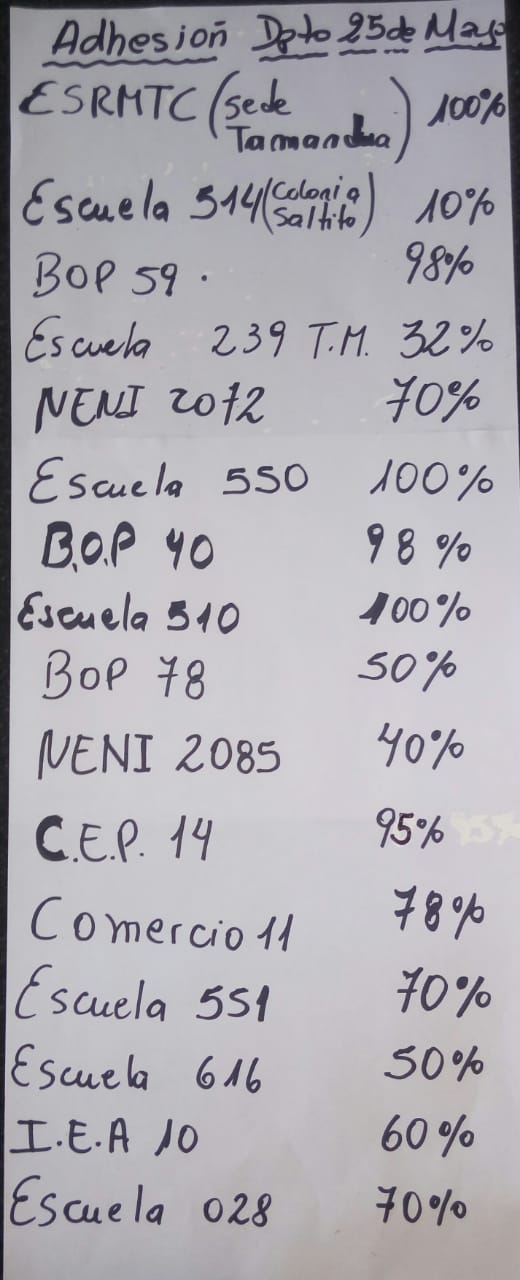 Adhesión Dpto 25 de Mayo
ESRMTC (sede Tamandua) 100%
Escuela 514 (Colonia Saltito) 10%
BOP 59. 98%
Escuela 239 T.M. 32%
NENI 2072 70%
Escuela 550 100%
B.O.P 40 98%
Escuela 510 100%
BOP 78 50%
NENI 2085 40%
C.E.P. 14 95%
Comercio 11 78%
Escuela 551 70%
Escuela 616 50%
I.E.A 10 60%
Escuela 028 70%